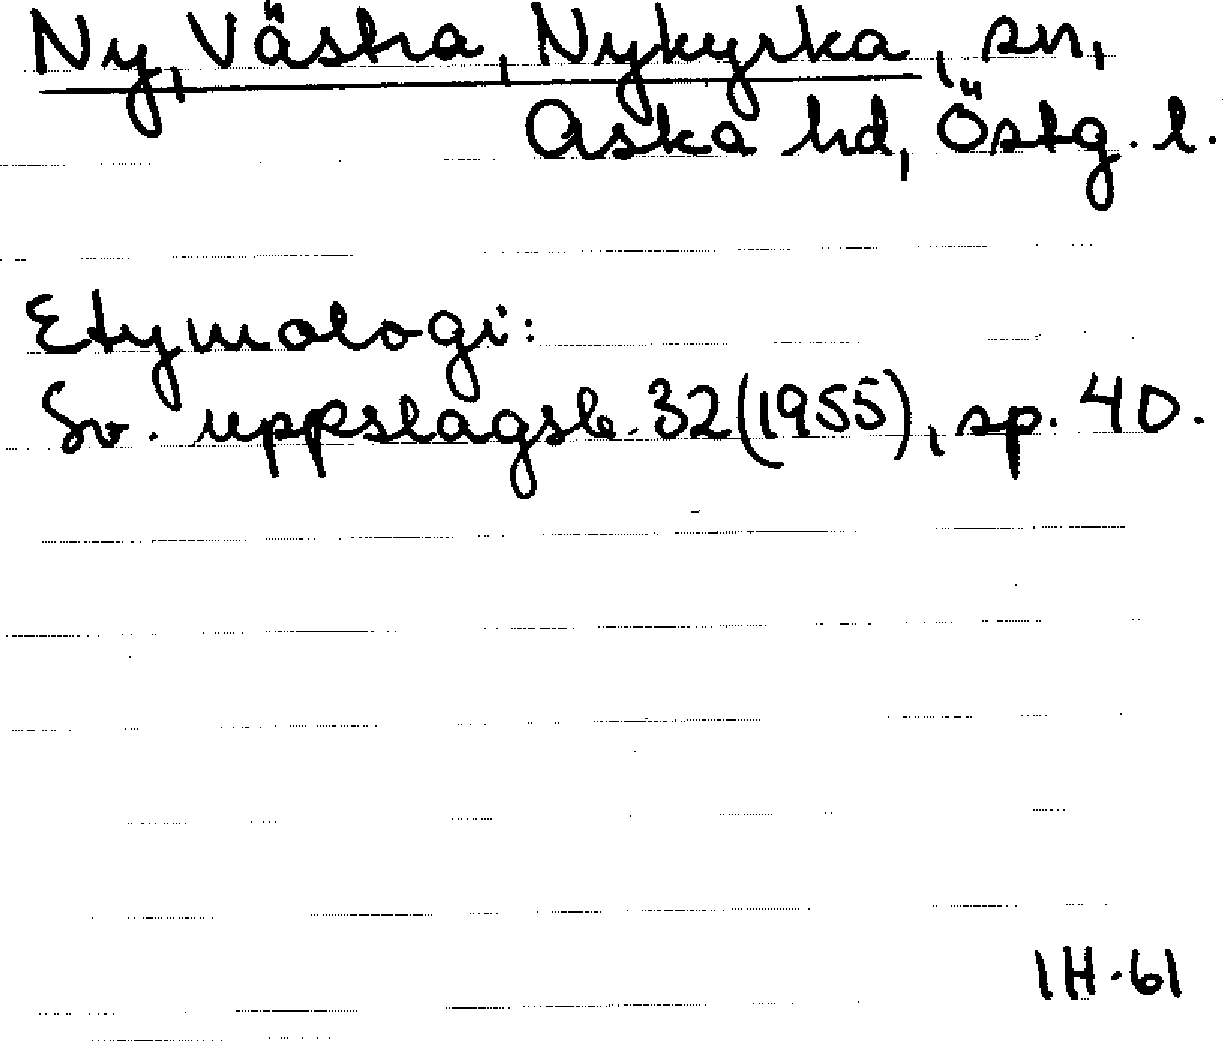 Ny, Västra, Nykyrka, sn,
Aska hd, Östg. l.
Etymologi:
Sv. uppslagsb. 32(1955), sp. 40.
IH-61